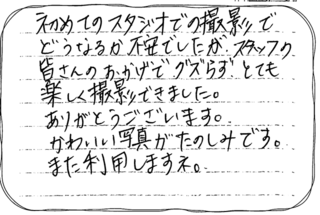 初めてのスタジオでの撮影で
どうなるか不安でしたが、スタッフの
皆さんのおかげでグズらず、とても
楽しく撮影できました。
ありがとうございます。
かわいい写真がたのしみです。
また利用しますネ。